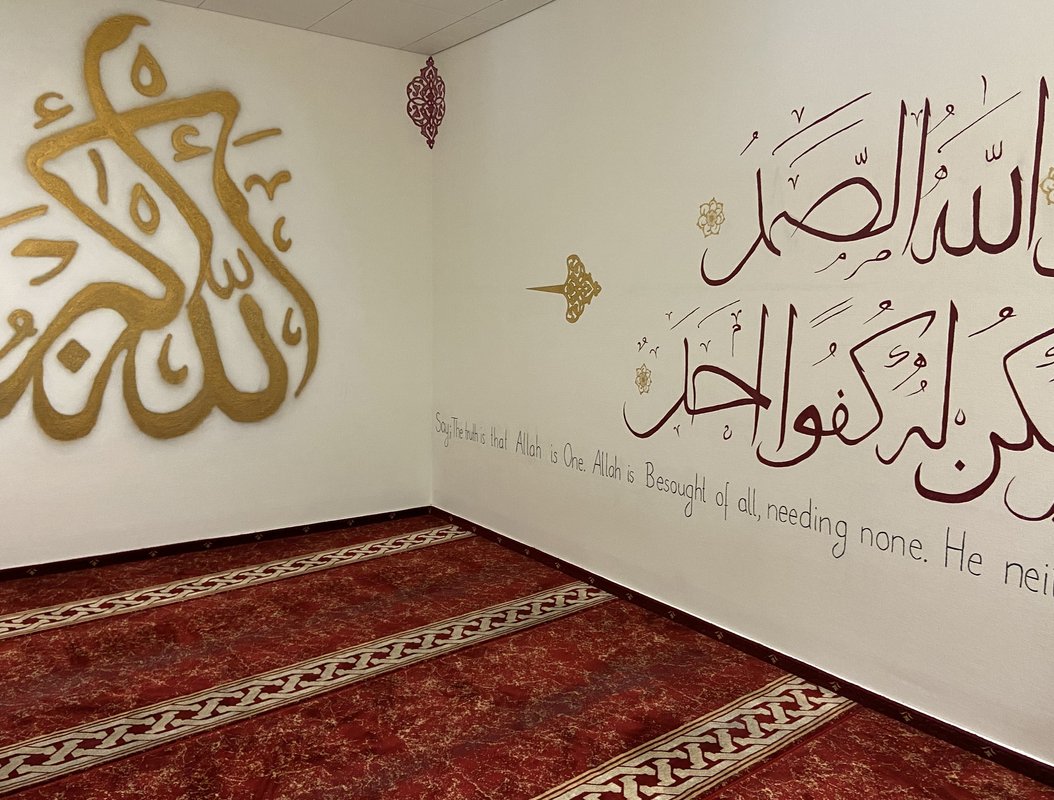 الله أكبر
اللَّهُ الصَّمَدُ
يَكُن لَّهُ كُفُوًا أَحَدٌ
Say; The truth is that Allah is One. Allah is Besought of all, needing none. He